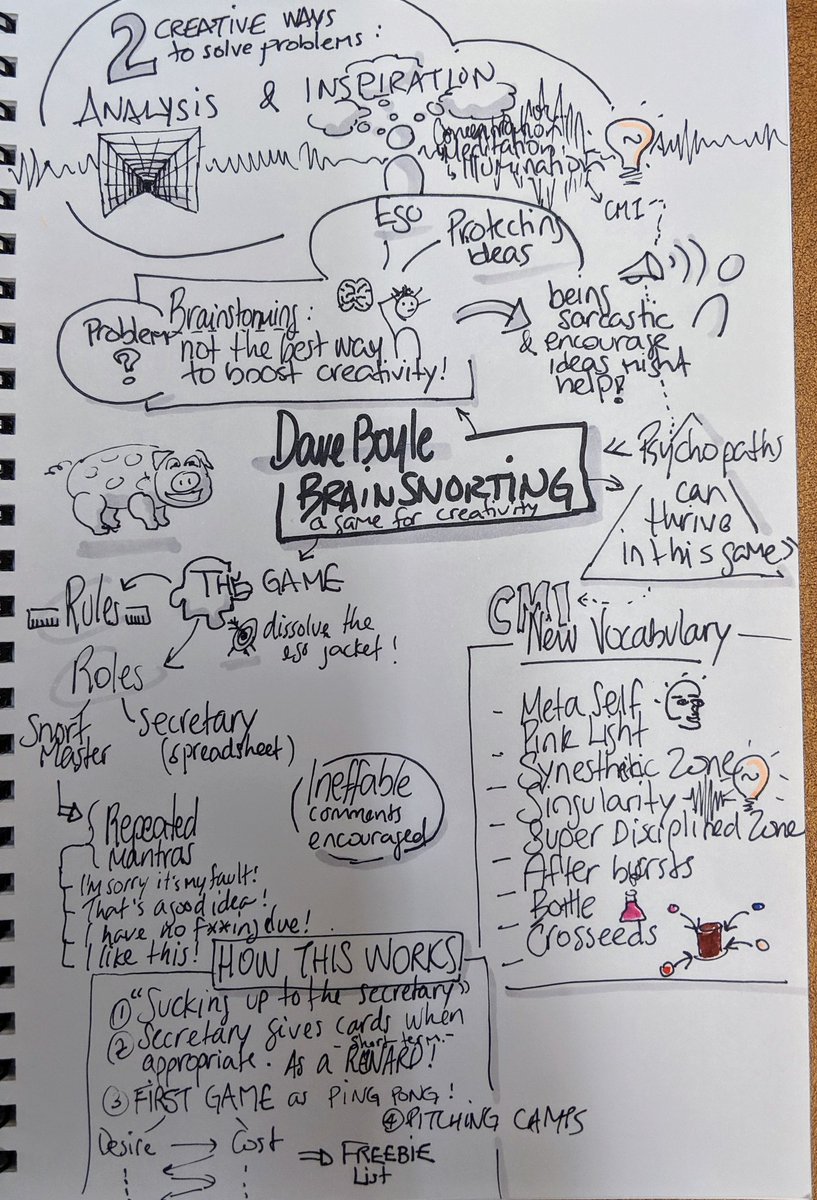 2 CREATIVE WAYS
to solve problems:
ANALYSIS & INSPIRATION
Concentration
Meditation
Illumination
CMI
EGO
Protecting
ideas
Problem
?
Brainstorming:
not the best way
to boost creativity!
being
sarcastic
& encourage
ideas might
help!
Dave Boyle
BRAINSNORTING
a game for creativity
Psychopaths
can
thrive
in this game
THE GAME
dissolve the
ego jacket!
Rules
Roles
Snort
Master
Secretary
(spreadsheet)
Repeated
Mantras
I'm sorry it's my fault!
That's a good idea!
I have no f**ing clue!
I like this!
Ineffable
comments
encouraged
CMI
New Vocabulary
- Meta Self
- Pink Light
- Synesthetic Zone
- Singularity
- Super Disciplined Zone
- After bursts
- Bottle
- Crosseeds
HOW THIS WORKS
① "Sucking up to the secretary"
② Secretary gives cards when
appropriate. As a REWARD!
- short term -
③ FIRST GAME as PING PONG!
④ PITCHING CAMPS
Desire → Cost ⇒ FREEBIE
List